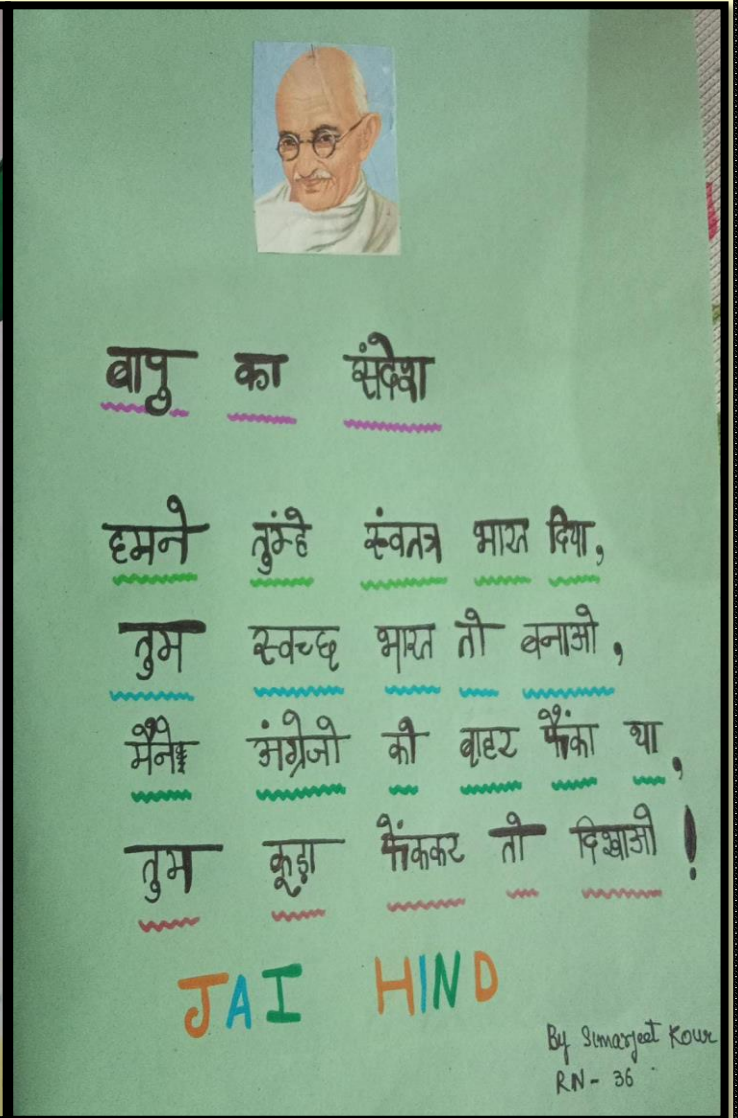 बापु का संदेश
हमने तुंम्हे स्ंवतत्र भारत दिया,
तुम स्वच्छ भारत तो बनाओ,
मैंने अंग्रेजो को बाहर फैंका था,
तुम कूड़ा फेंककर तो दिखाओ !
JAI HIND
By Simarjeet Kour
RN - 36